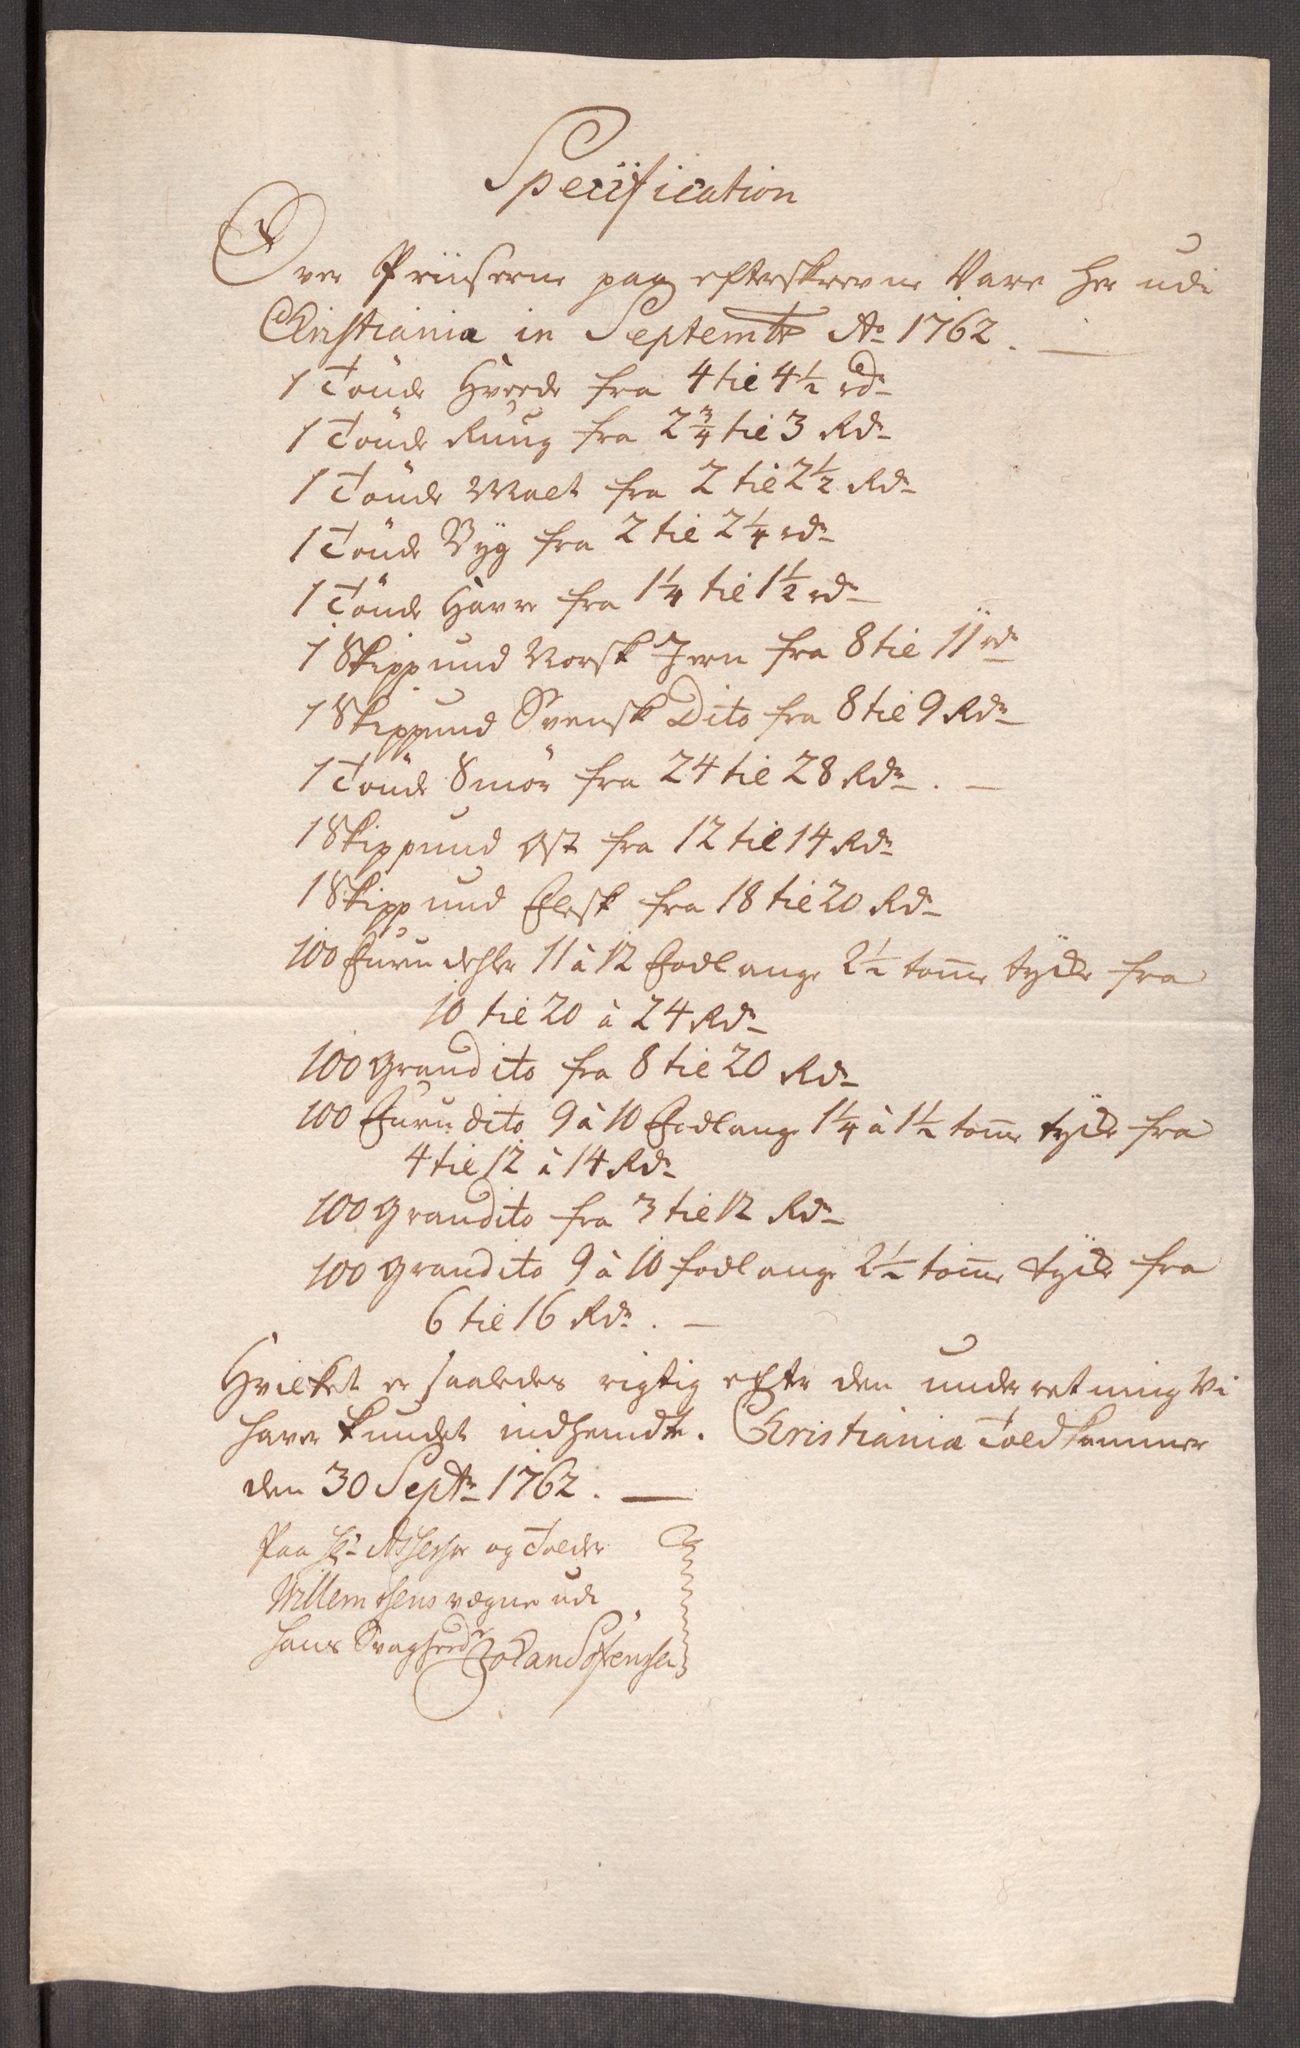 Specification
Over Priiserne paa efterskrevne Vare her udi
Christiania in Septembr Ao 1762.
1 Tönde Hvede fra 4 til 4½ rdr
1 Tönde Ruug fra 2¾ til 3 Rdr
1 Tönde Malt fra 2 til 2½ Rdr
1 Tönde Byg fra 2 til 2¼ rdr
1 Tönde Havre fra 1¼ til 1½ rdr
1 Skippund Norsk Jern fra 8 til 11 rdr
1 Skippund Svensk Dito fra 8 til 9 Rdr
1 Tönde Smör fra 24 til 28 Rdr.
1 Skippund Ost fra 12 til 14 Rdr
1 Skippund Flesk fra 18 til 20 Rdr
100 Furu dehler 11 à 12 Fod lange 2½ tomme tyke fra
10 til 20 à 24 Rdr
100 Gran dito fra 8 til 20 Rdr
100 Furu dito 9 à 10 Fod lange 1¼ à 1½ tomme tyke fra
4 til 12 à 14 Rdr
100 Gran dito fra 3 til 12 Rdr
100 Gran dito 9 à 10 fod lange 2½ tomme tyke fra
6 til 16 Rdr.
Hvilket er saaledes rigtig efter den underretning Vi
haver kundet indhendte. Christiania Toldkammer
den 30 Septr 1762.
Paa Hr Assessor og Tolder
Willemsens vegne udi
hans Svaghed Johan Sörensen